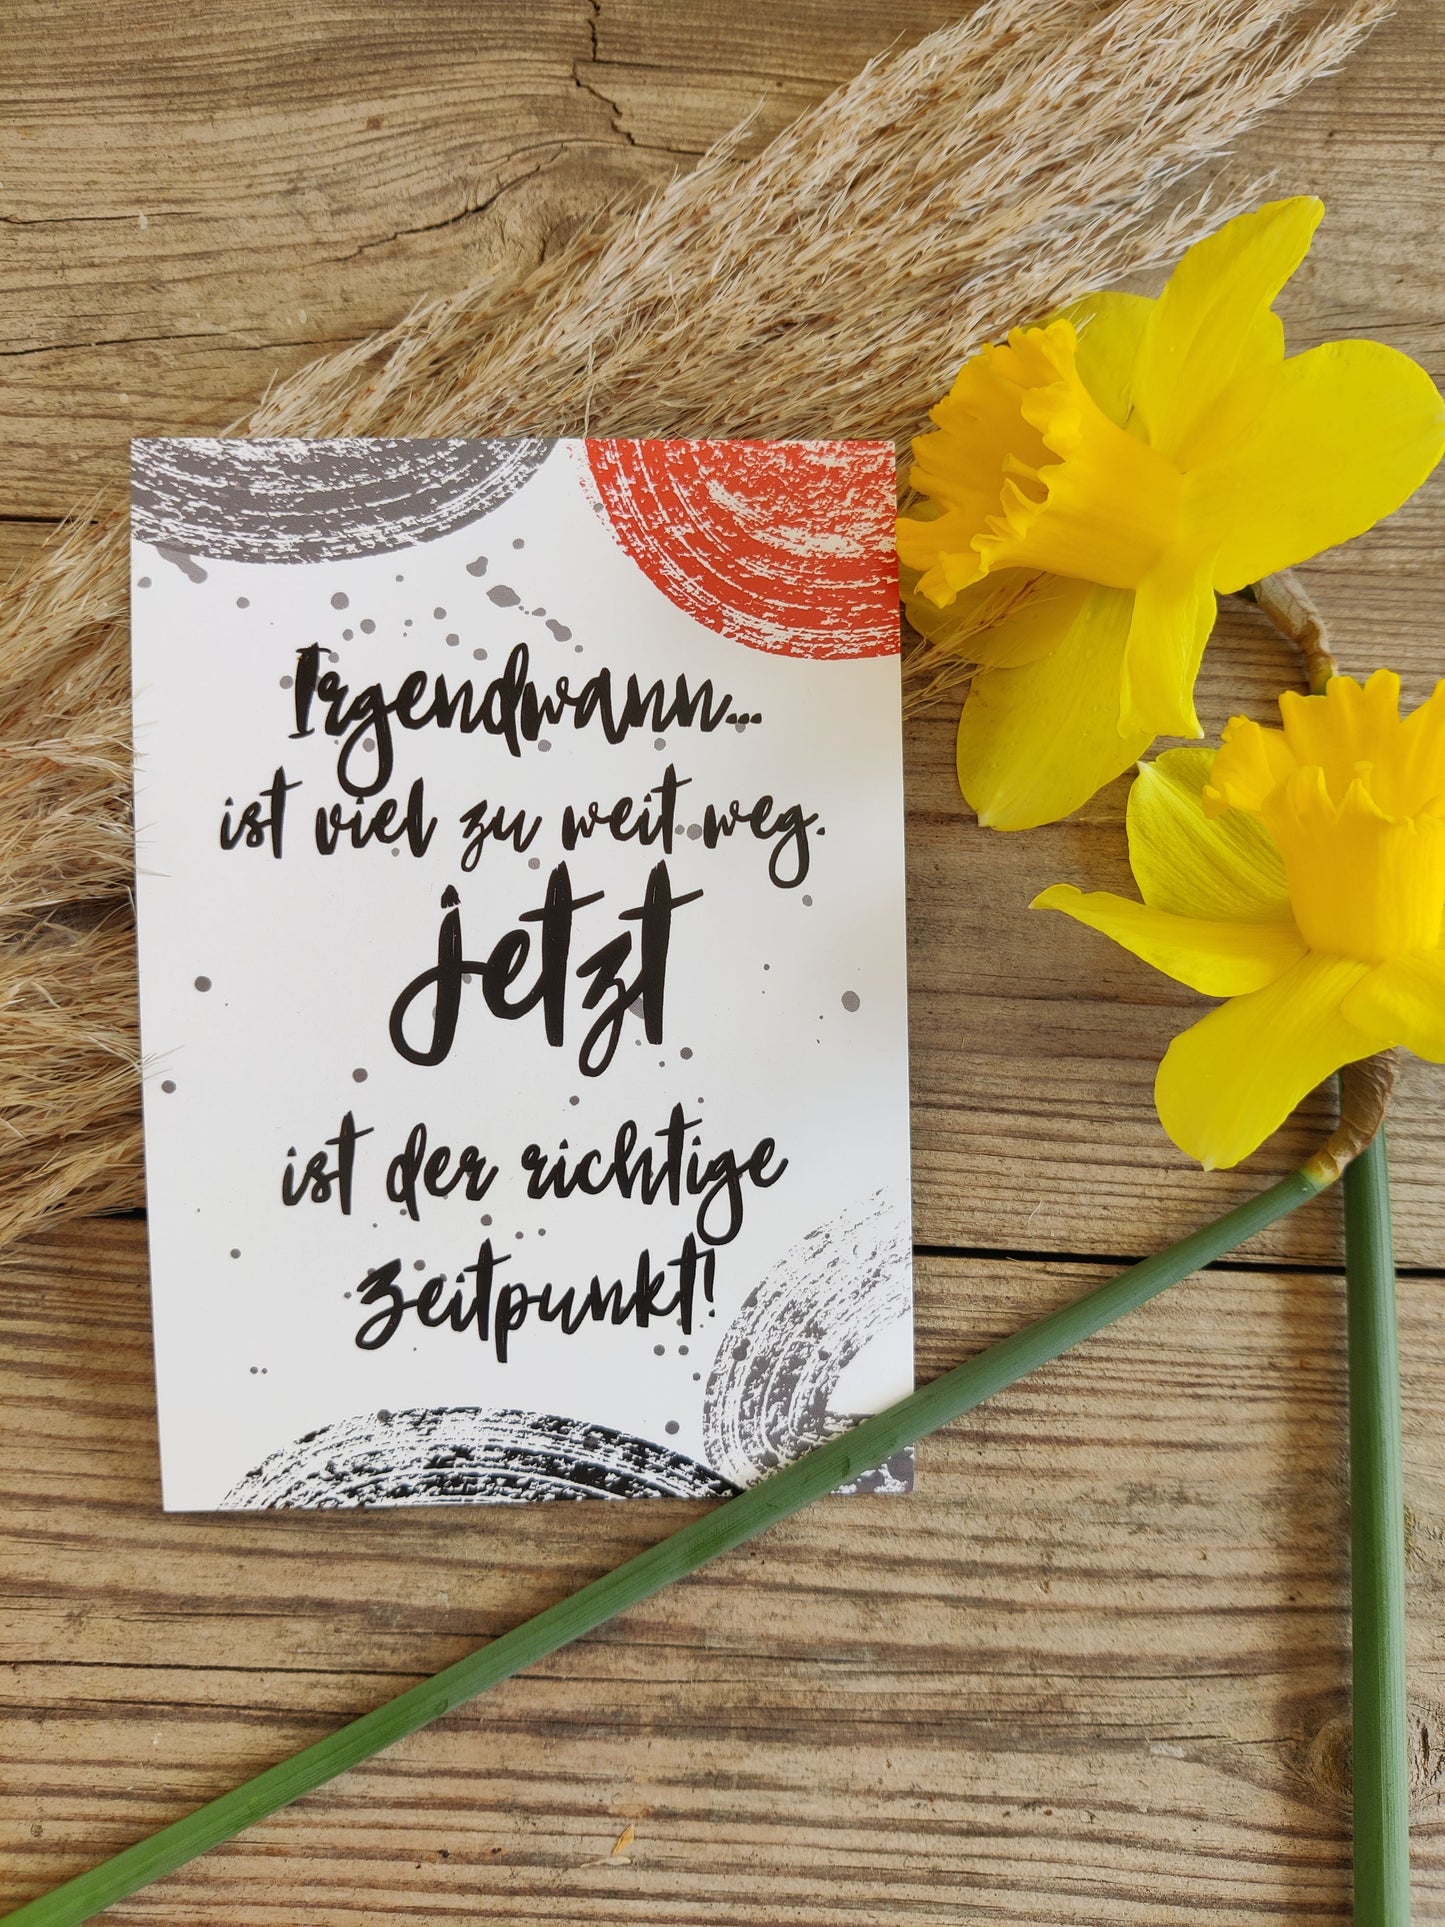 Irgendwann...
ist viel zu weit weg.
jetzt
ist der richtige
Zeitpunkt!